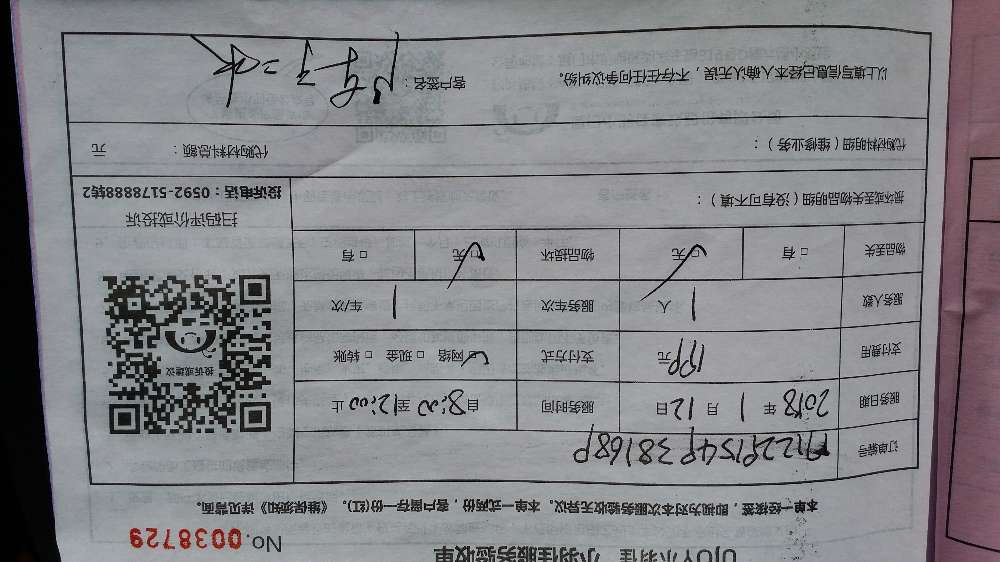 UJOY小羽佳 小羽佳服务验收单
No. 0038729
本单一经接签，即视为对本次服务验收无异议。本单一式两份，客户留存一份(红)。《维保须知》详见背面。
订单编号
服务日期 2018 年 1 月 12 日 服务时间 自 8:00 至 12:00 止
支付费用 199 元 支付方式 □ 网络 □ 现金 □ 转账
服务人数 1 人 服务车次 1 车/次
物品丢失 □ 有 □ 无 物品损坏 □ 无 □ 有
投诉或建议
扫码评价或投诉
投诉电话：0592-5178888转2
损坏或丢失物品明细（没有可不填）：
代购材料明细（维修业务）： 代购材料总额： 元
以上填写信息已经本人确认无误，不存在任何争议纠纷。 客户签名：